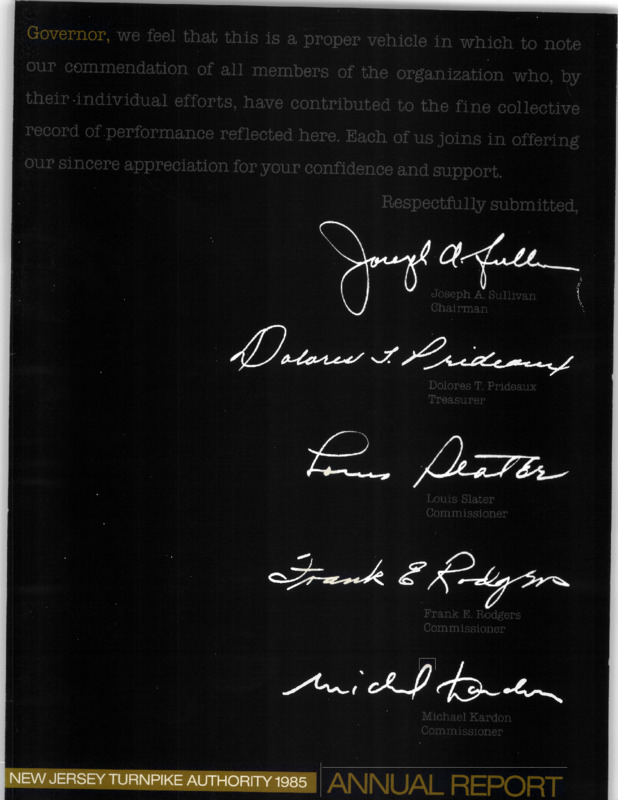 Governor, we feel that this is a proper vehicle in which to note
our commendation of all members of the organization who, by
their individual efforts, have contributed to the fine collective
record of performance reflected here. Each of us joins in offering
our sincere appreciation for your confidence and support.
Respectfully submitted,
Joseph A. Sullivan
Joseph A. Sullivan
Chairman
Dolores T. Prideaux
Dolores T. Prideaux
Treasurer
Louis Slater
Louis Slater
Commissioner
Frank E Rodgers
Frank E. Rodgers
Commissioner
Michael Kardon
Michael Kardon
Commissioner
NEW JERSEY TURNPIKE AUTHORITY 1985
ANNUAL REPORT